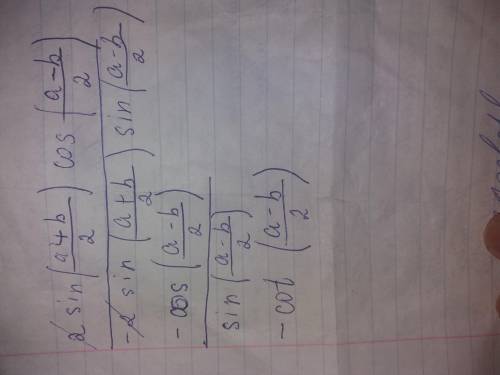 2 sin(a+b/2) cos(a-b/2)
-2 sin(a+b/2) sin(a-b/2)
-cos(a-b/2)
sin(a-b/2)
-cot(a-b/2)